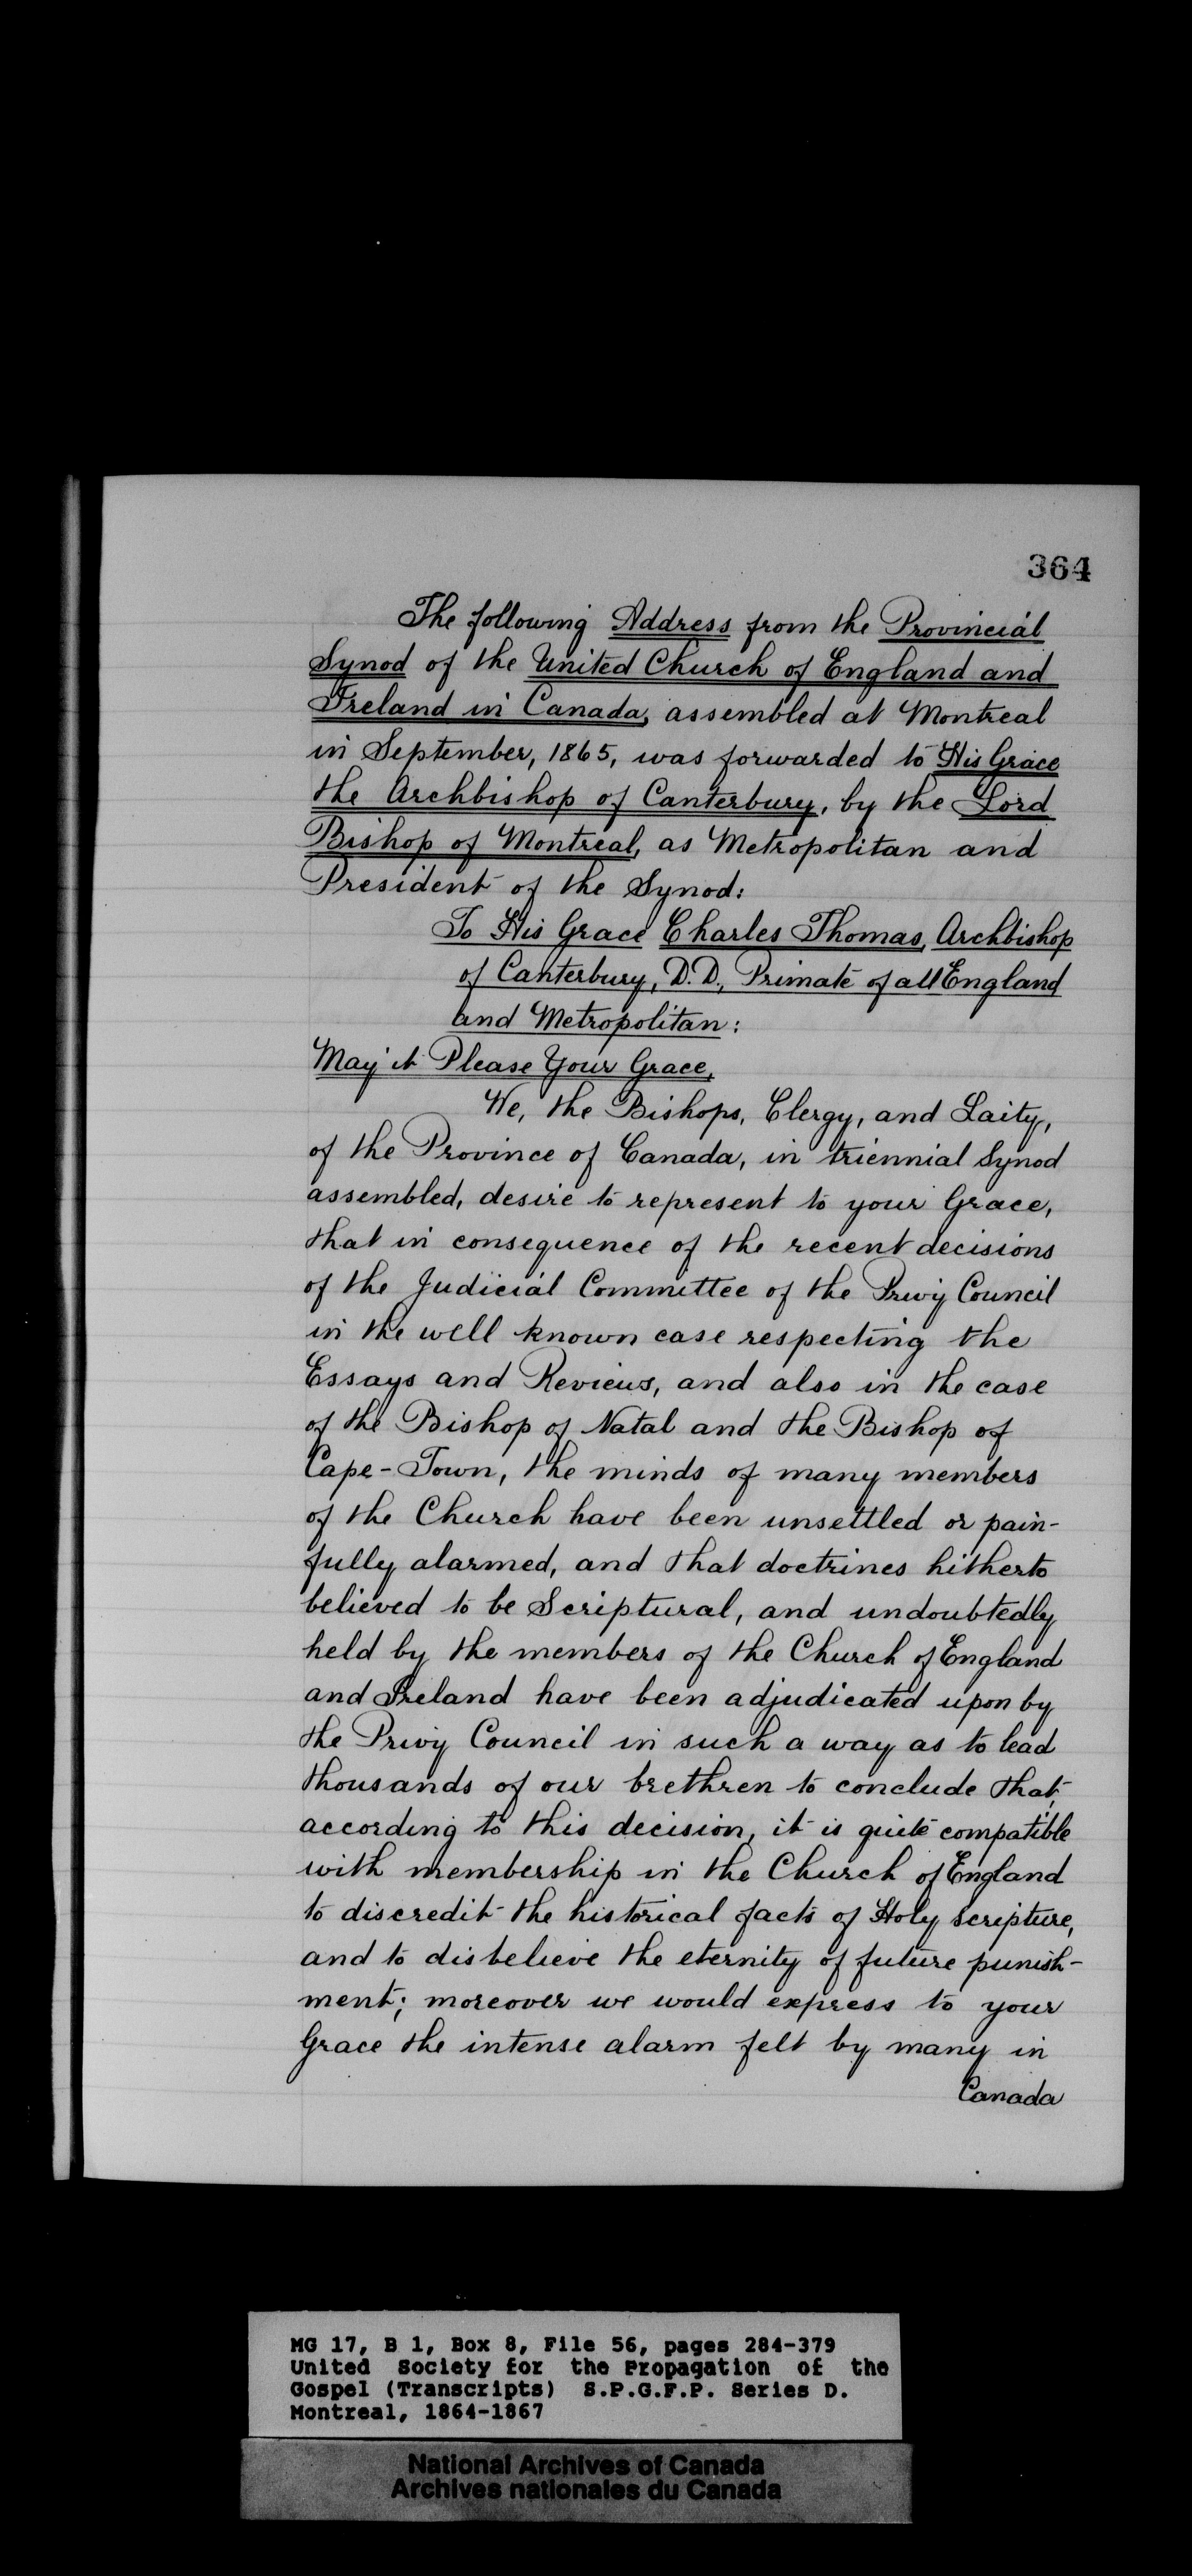 364
The following Address from the Provincial
Synod of the United Church of England and
Ireland in Canada, assembled at Montreal
in September, 1865, was forwarded to His Grace
the Archbishop of Canterbury, by the Lord
Bishop of Montreal, as Metropolitan and
President of the Synod:
To His Grace Charles Thomas, Archbishop
of Canterbury, D.D., Primate of all England
and Metropolitan:
May it Please Your Grace,
We, the Bishops, Clergy, and Laity,
of the Province of Canada, in triennial Synod
assembled, desire to represent to your Grace,
that in consequence of the recent decisions
of the Judicial Committee of the Privy Council
in the well known case respecting the
Essays and Reviews, and also in the case
of the Bishop of Natal and the Bishop of
Cape-Town, the minds of many members
of the Church have been unsettled or pain-
fully alarmed, and that doctrines hitherto
believed to be Scriptural, and undoubtedly
held by the members of the Church of England
and Ireland have been adjudicated upon by
the Privy Council in such a way as to lead
thousands of our brethren to conclude that,
according to this decision, it is quite compatible
with membership in the Church of England
to discredit the historical facts of Holy Scripture,
and to disbelieve the eternity of future punish-
ment; moreover we would express to your
Grace the intense alarm felt by many in
Canada
MG 17, B 1, Box 8, File 56, pages 284-379
United Society for the Propagation of the
Gospel (Transcripts) S.P.G.F.P. Series D.
Montreal, 1864-1867
National Archives of Canada
Archives nationales du Canada